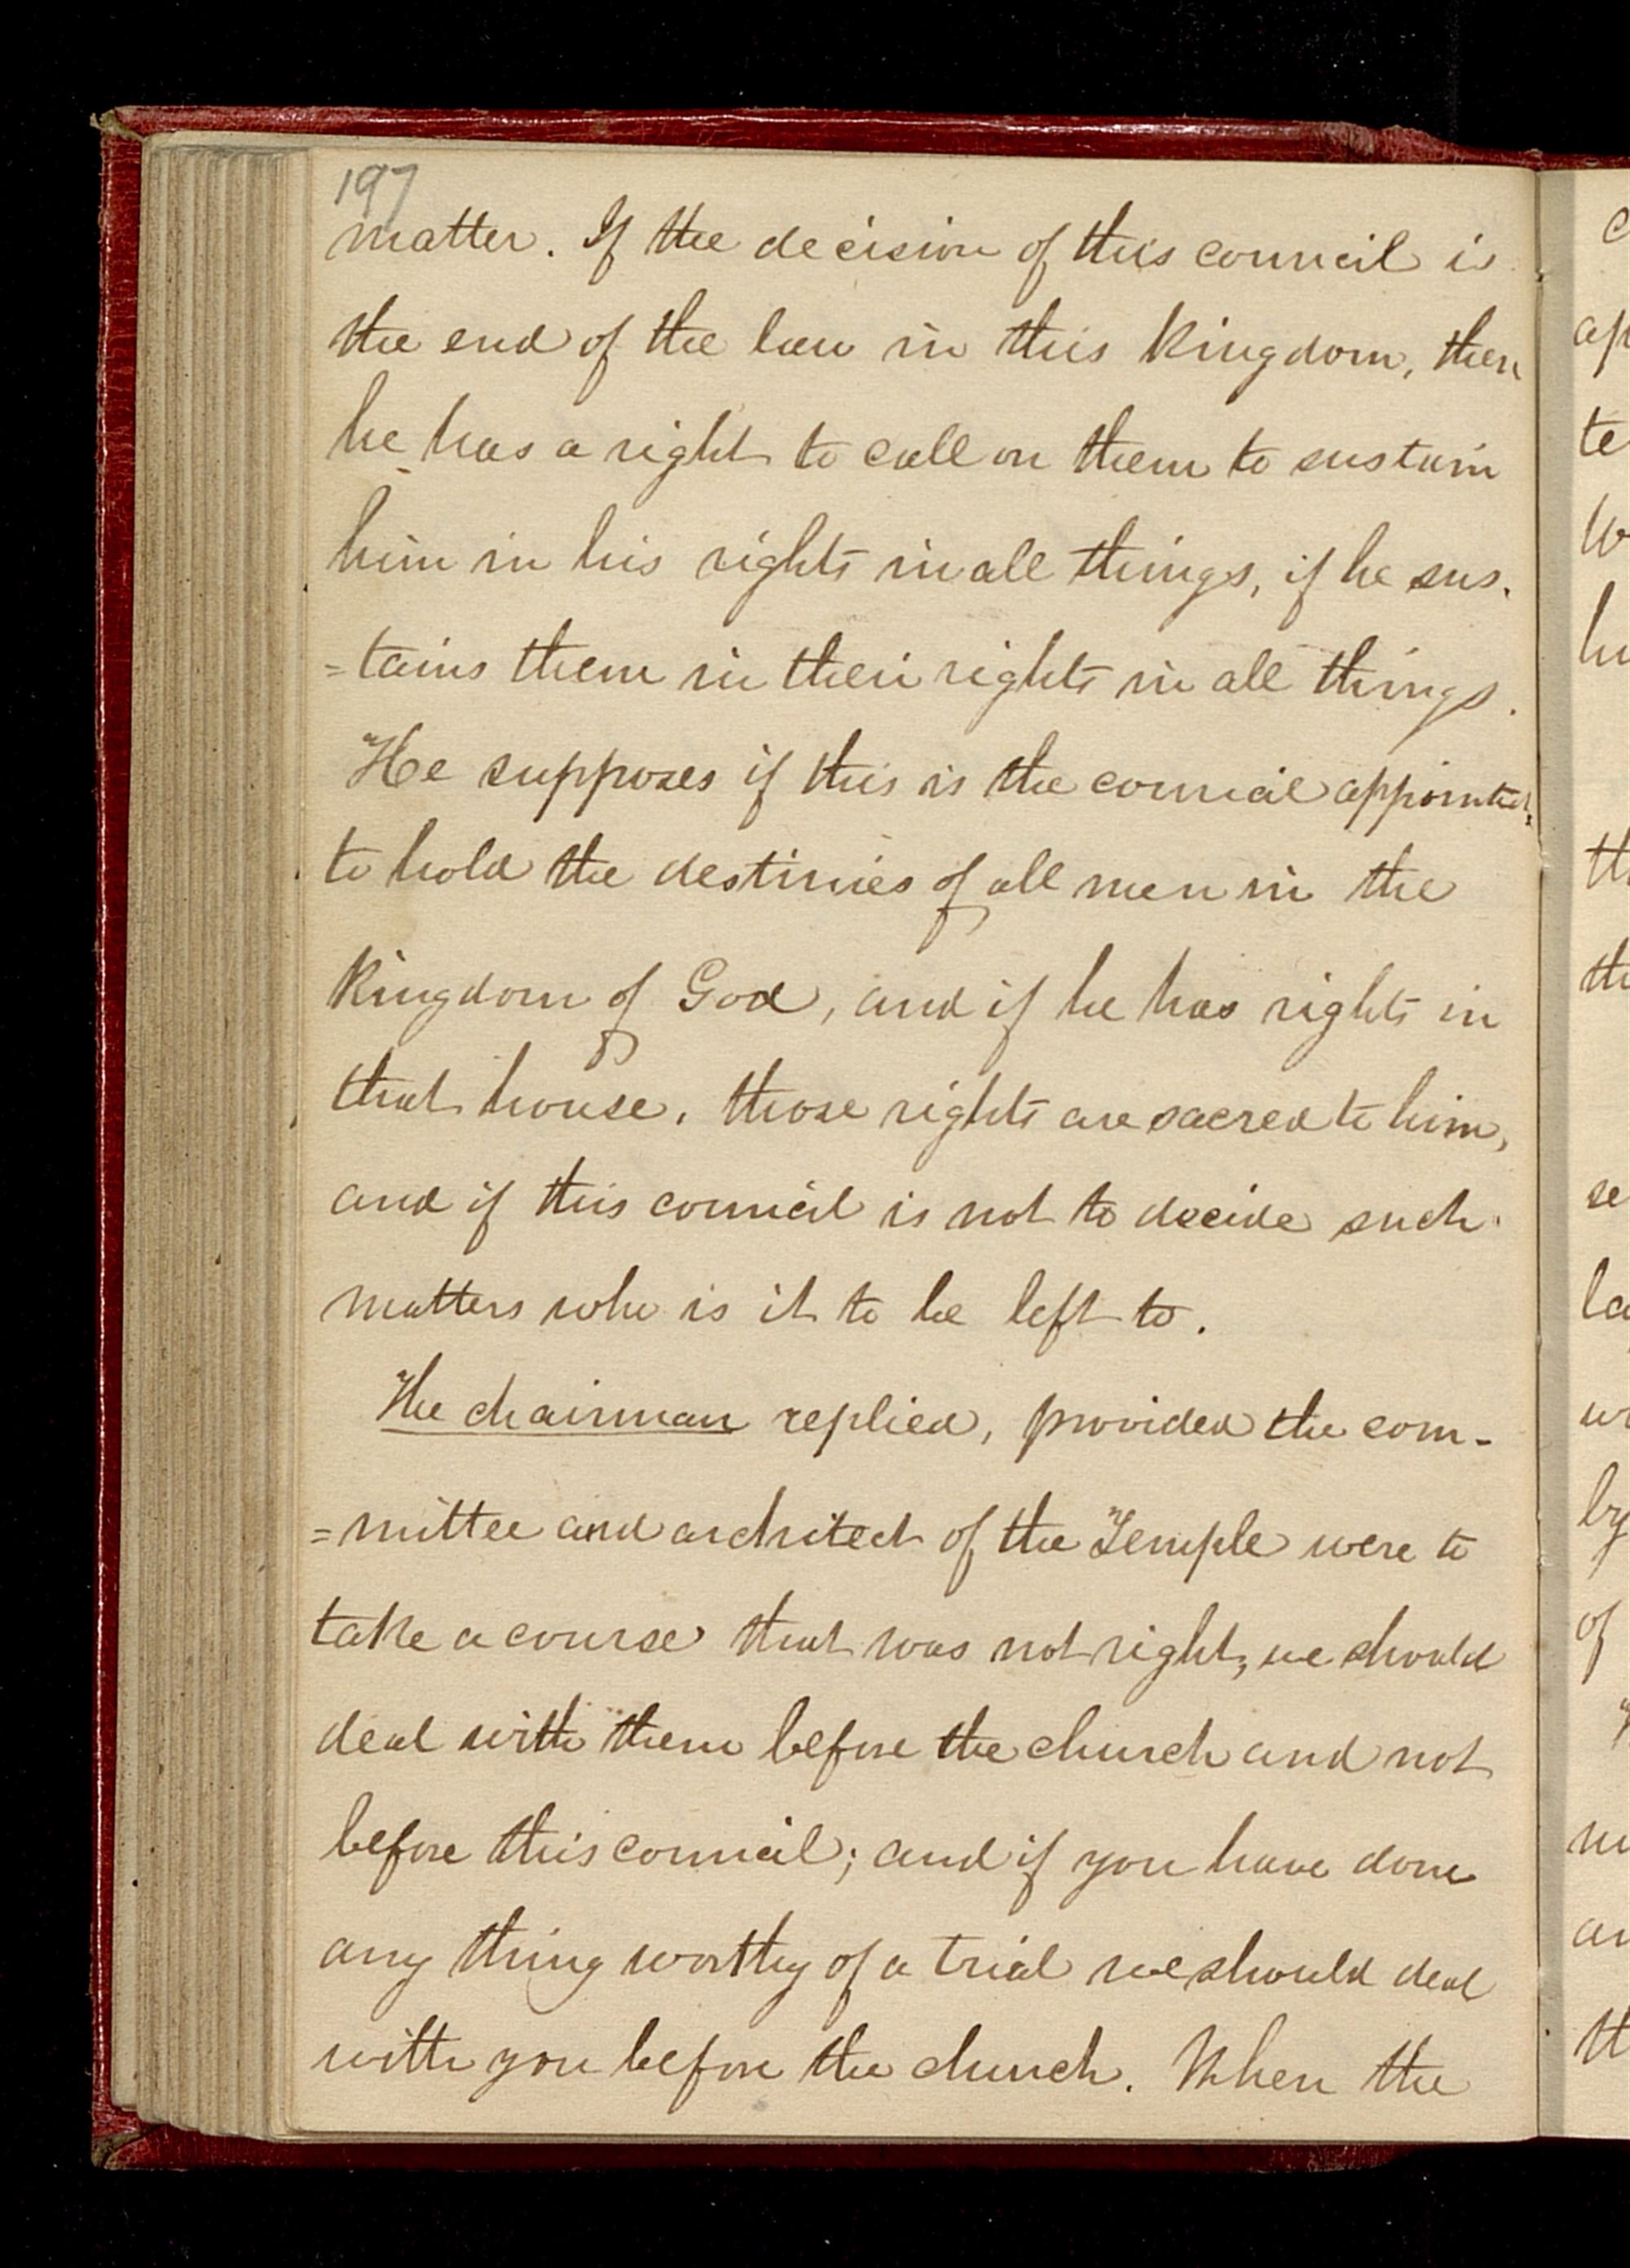 197
matter. If the decision of this council is
the end of the law in this kingdom, then
he has a right to call on them to sustain
him in his rights in all things, if he sus-
=tains them in their rights in all things.
He supposes if this is the council appointed
to hold the destinies of all men in the
kingdom of God, and if he has rights in
that house, those rights are sacred to him,
and if this council is not to decide such
matters who is it to be left to.
The chairman replied, provided the com-
=mittee and architect of the Temple were to
take a course that was not right, we should
deal with them before the church and not
before this council; and if you have done
any thing worthy of a trial we should deal
with you before the church. When the